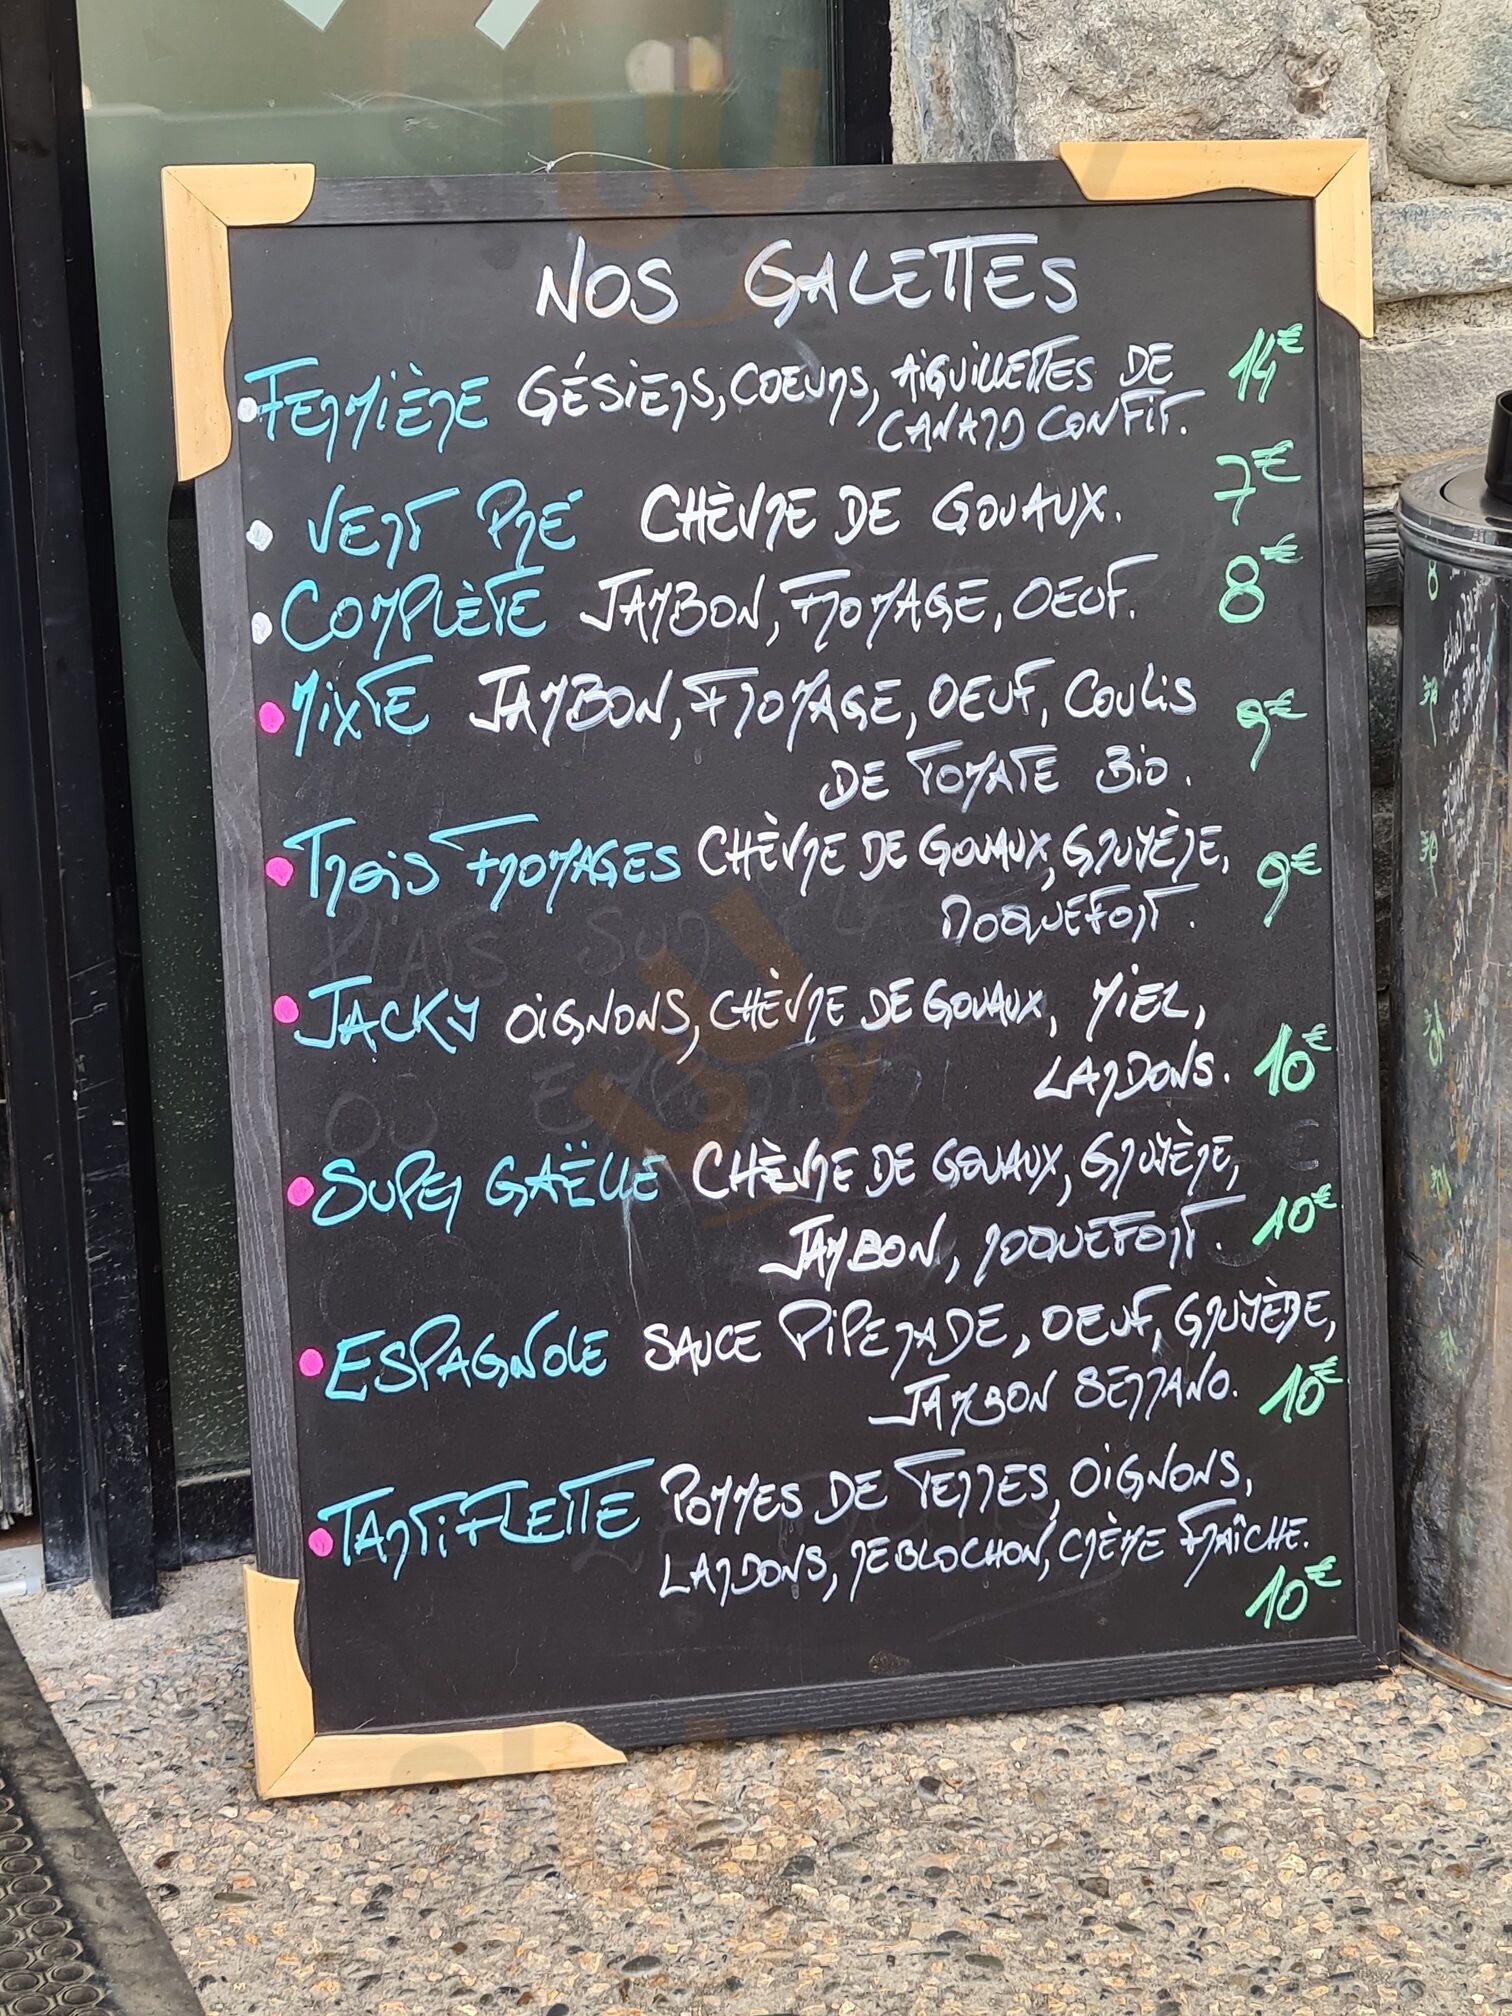 NOS GALETTES
FERMIÈRE GÉSIERS, COEURS, AIGUILLETTES DE 14€
CANARD CONFIT.
VERT PRÉ CHÈVRE DE GOUAUX. 7€
COMPLÈTE JAMBON, FROMAGE, OEUF. 8€
MIXTE JAMBON, FROMAGE, OEUF, COULIS 9€
DE TOMATE BIO.
TROIS FROMAGES CHÈVRE DE GOUAUX, GRUYÈRE, 9€
ROQUEFORT.
JACKY OIGNONS, CHÈVRE DE GOUAUX, MIEL,
LARDONS. 10€
SUPER GAËLLE CHÈVRE DE GOUAUX, GRUYÈRE,
JAMBON, ROQUEFORT. 10€
ESPAGNOLE SAUCE PIPERADE, OEUF, GRUYÈRE,
JAMBON SERRANO. 10€
TARTIFLETTE POMMES DE TERRES, OIGNONS,
LARDONS, REBLOCHON, CRÈME FRAÎCHE.
10€